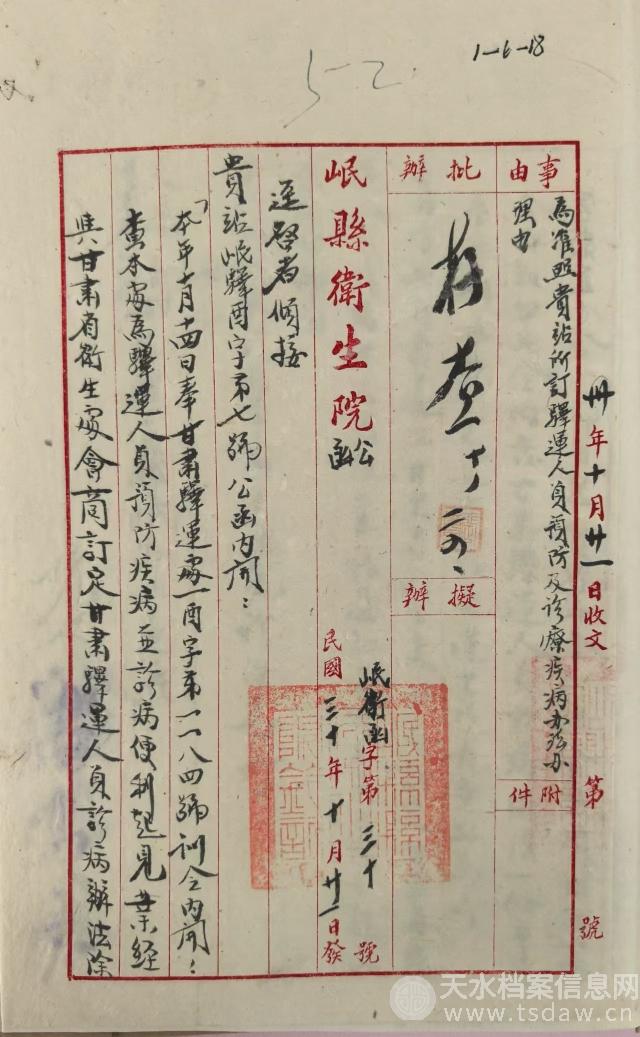 1-6-18
52
卅年十月廿一日收文 第 號
事由
為准照貴站所訂驛運人員預防及診療疾病辦法辦理由
附件
批辦
存查 十、二四、
擬辦
岷縣衛生院公函
岷衛函字第三十號
民國三十年十月廿一日發
逕啓者頃接
貴站岷驛酉字第七號公函內開：
「本年十月十四日奉甘肅驛運處一酉字第一一八四號訓令內開：
查本處為驛運人員預防疾病並診病便利起見業經
與甘肅省衛生處會商訂定甘肅驛運人員診病辦法除
天水档案信息网
www.tsdaw.cn